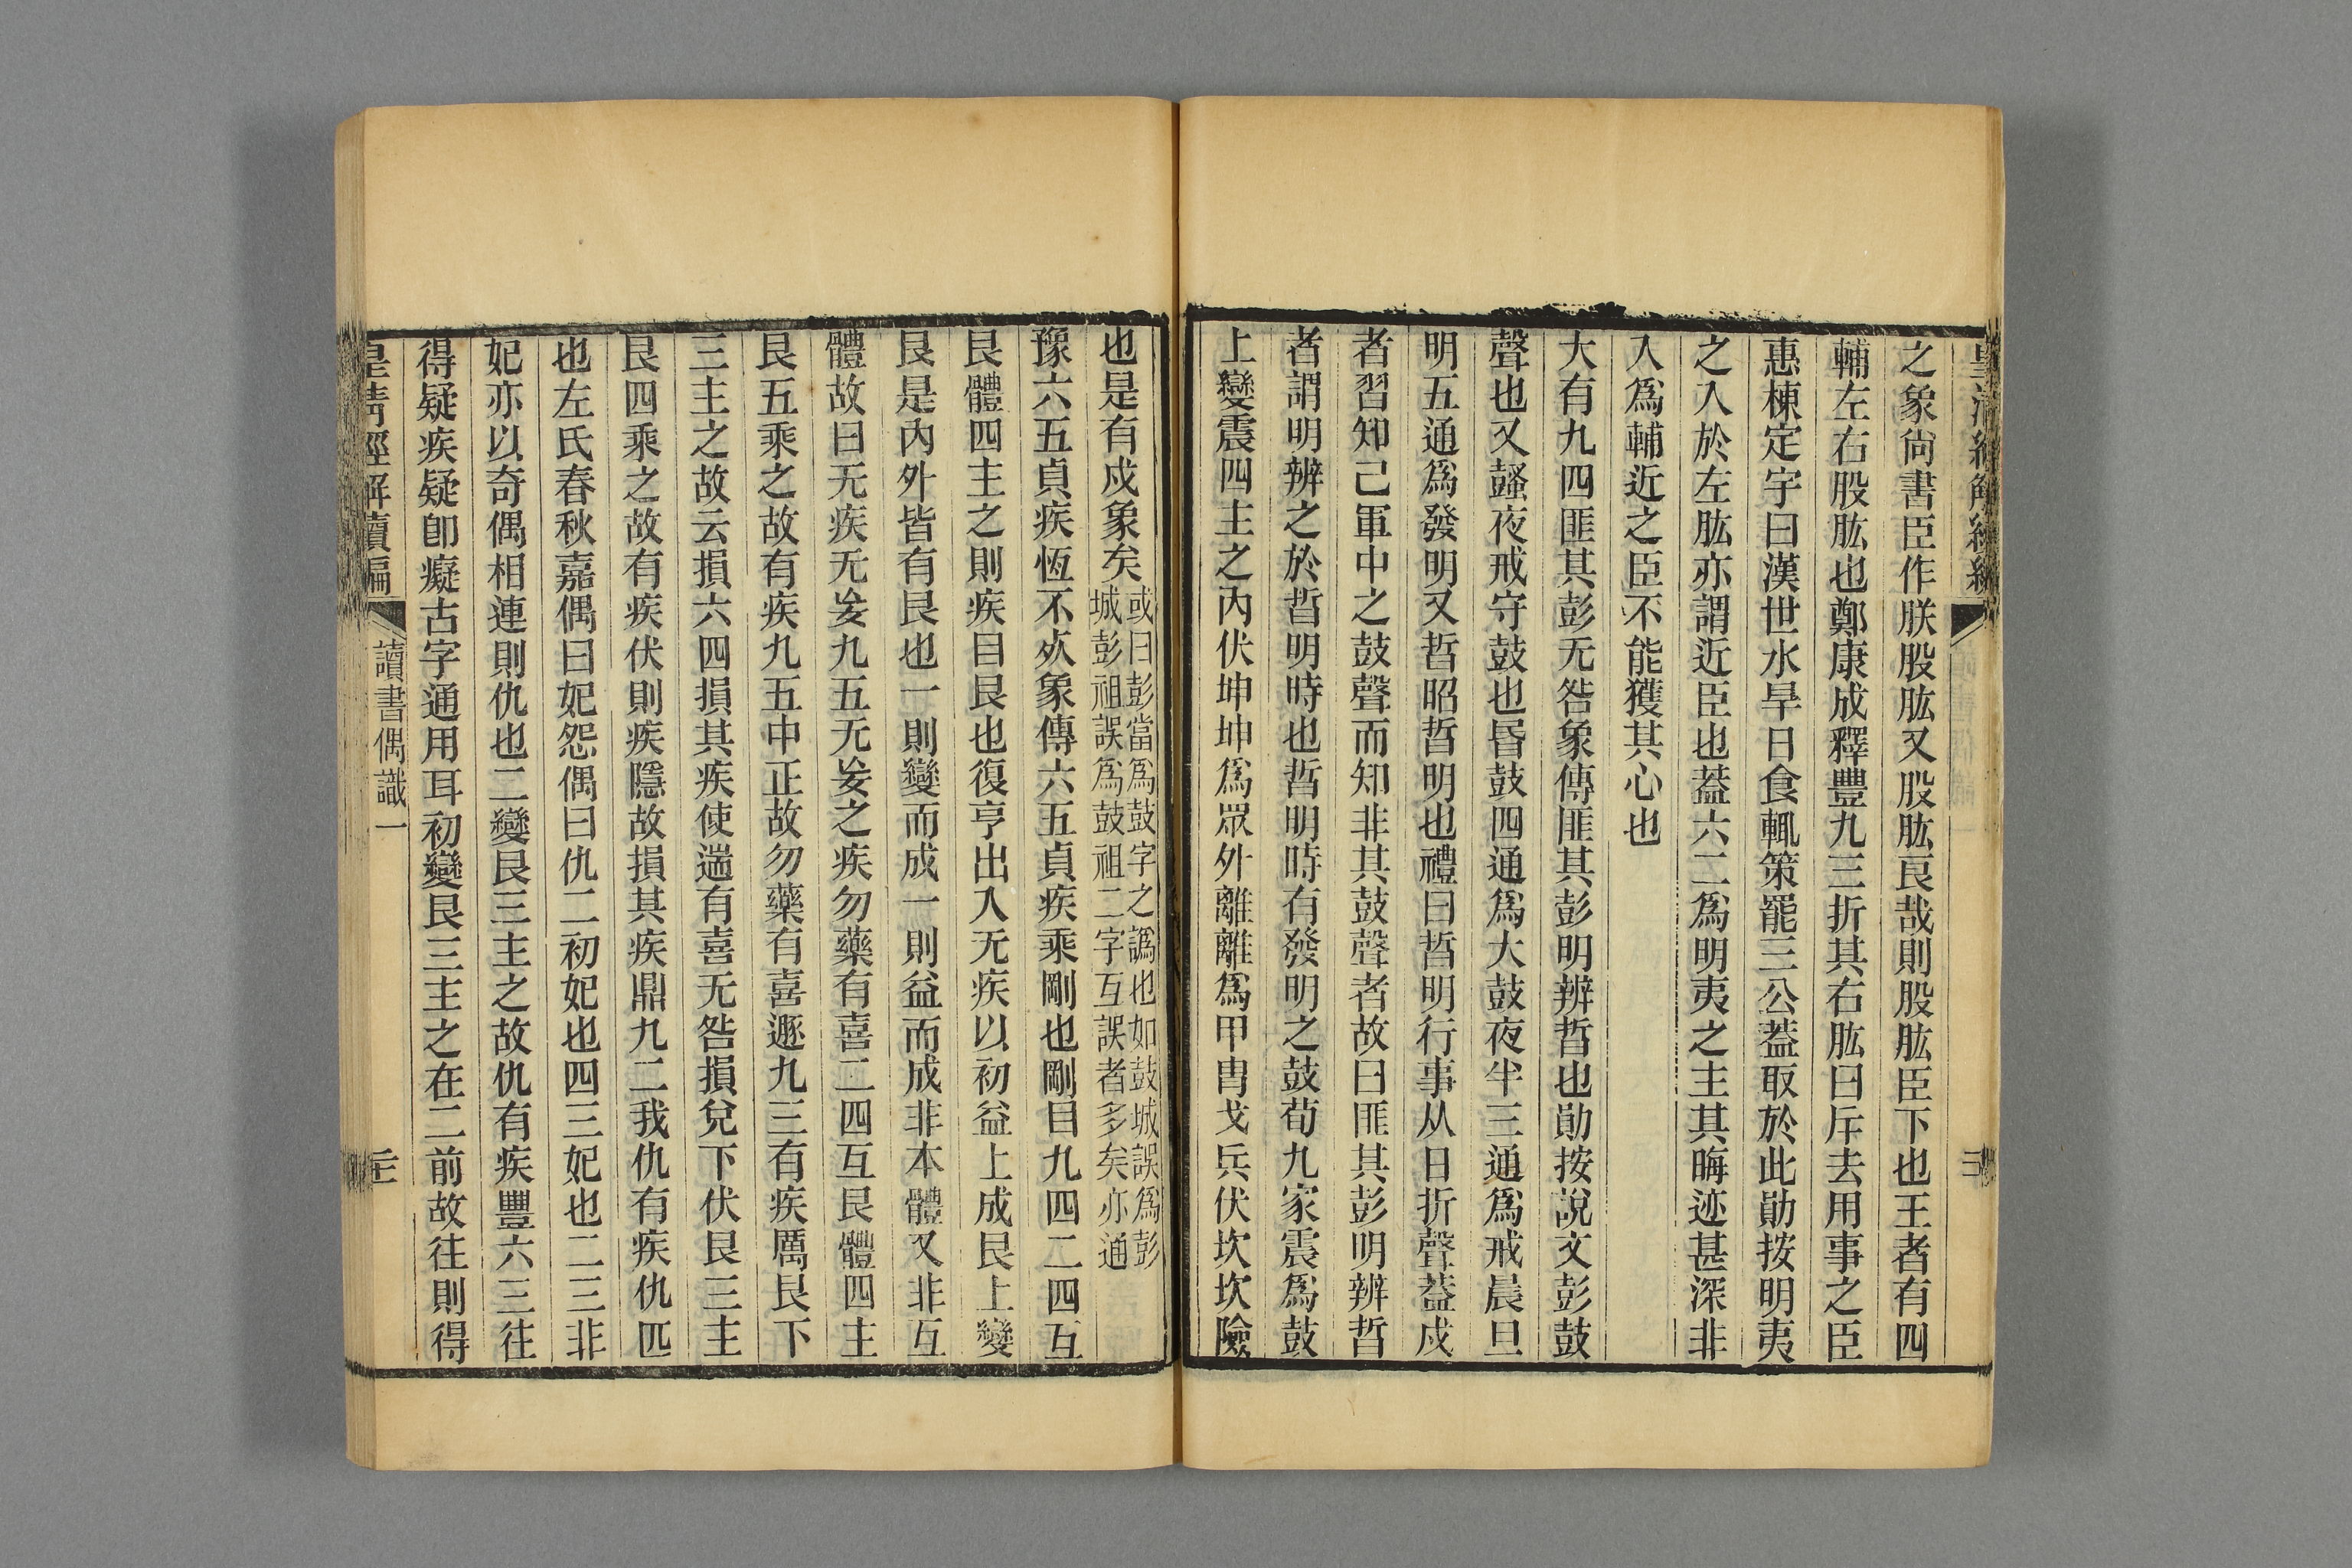 之象尙書臣作朕股肱又股肱良哉則股肱臣下也王者有四
輔左右股肱也鄭康成釋豐九三折其右肱曰斥去用事之臣
惠棟定宇曰漢世水旱日食輒策罷三公葢取於此勛按明夷
之入於左肱亦謂近臣也葢六二爲明夷之主其晦迹甚深非
入爲輔近之臣不能獲其心也
大有九四匪其彭无咎象傳匪其彭明辨晢也勛按說文彭鼓
聲也又鼜夜戒守鼓也昬鼓四通爲大鼓夜半三通爲戒晨旦
明五通爲發明又晢昭晢明也禮曰晢明行事从日折聲葢戍
者習知己軍中之鼓聲而知非其鼓聲者故曰匪其彭明辨晢
者謂明辨之於晢明時也晢明時有發明之鼓荀九家震爲鼓
上變震四主之內伏坤坤爲眾外離離爲甲冑戈兵伏坎坎險
也是有戍象矣或曰彭當爲鼓字之譌也如鼓城誤爲彭
城彭祖誤爲鼓祖二字互誤者多矣亦通
豫六五貞疾恆不死象傳六五貞疾乘剛也剛目九四二四互
艮體四主之則疾目艮也復亨出入无疾以初益上成艮上變
艮是內外皆有艮也一則變而成一則益而成非本體又非互
體故曰无疾无妄九五无妄之疾勿藥有喜二四互艮體四主
艮五乘之故有疾九五中正故勿藥有喜遯九三有疾厲艮下
三主之故云損六四損其疾使遄有喜无咎損兌下伏艮三主
艮四乘之故有疾伏則疾隱故損其疾鼎九二我仇有疾仇匹
也左氏春秋嘉偶曰妃怨偶曰仇二初妃也四三妃也二三非
妃亦以奇偶相連則仇也二變艮三主之故仇有疾豐六三往
得疑疾疑卽癡古字通用耳初變艮三主之在二前故往則得
皇清經解續編
讀書偶識一